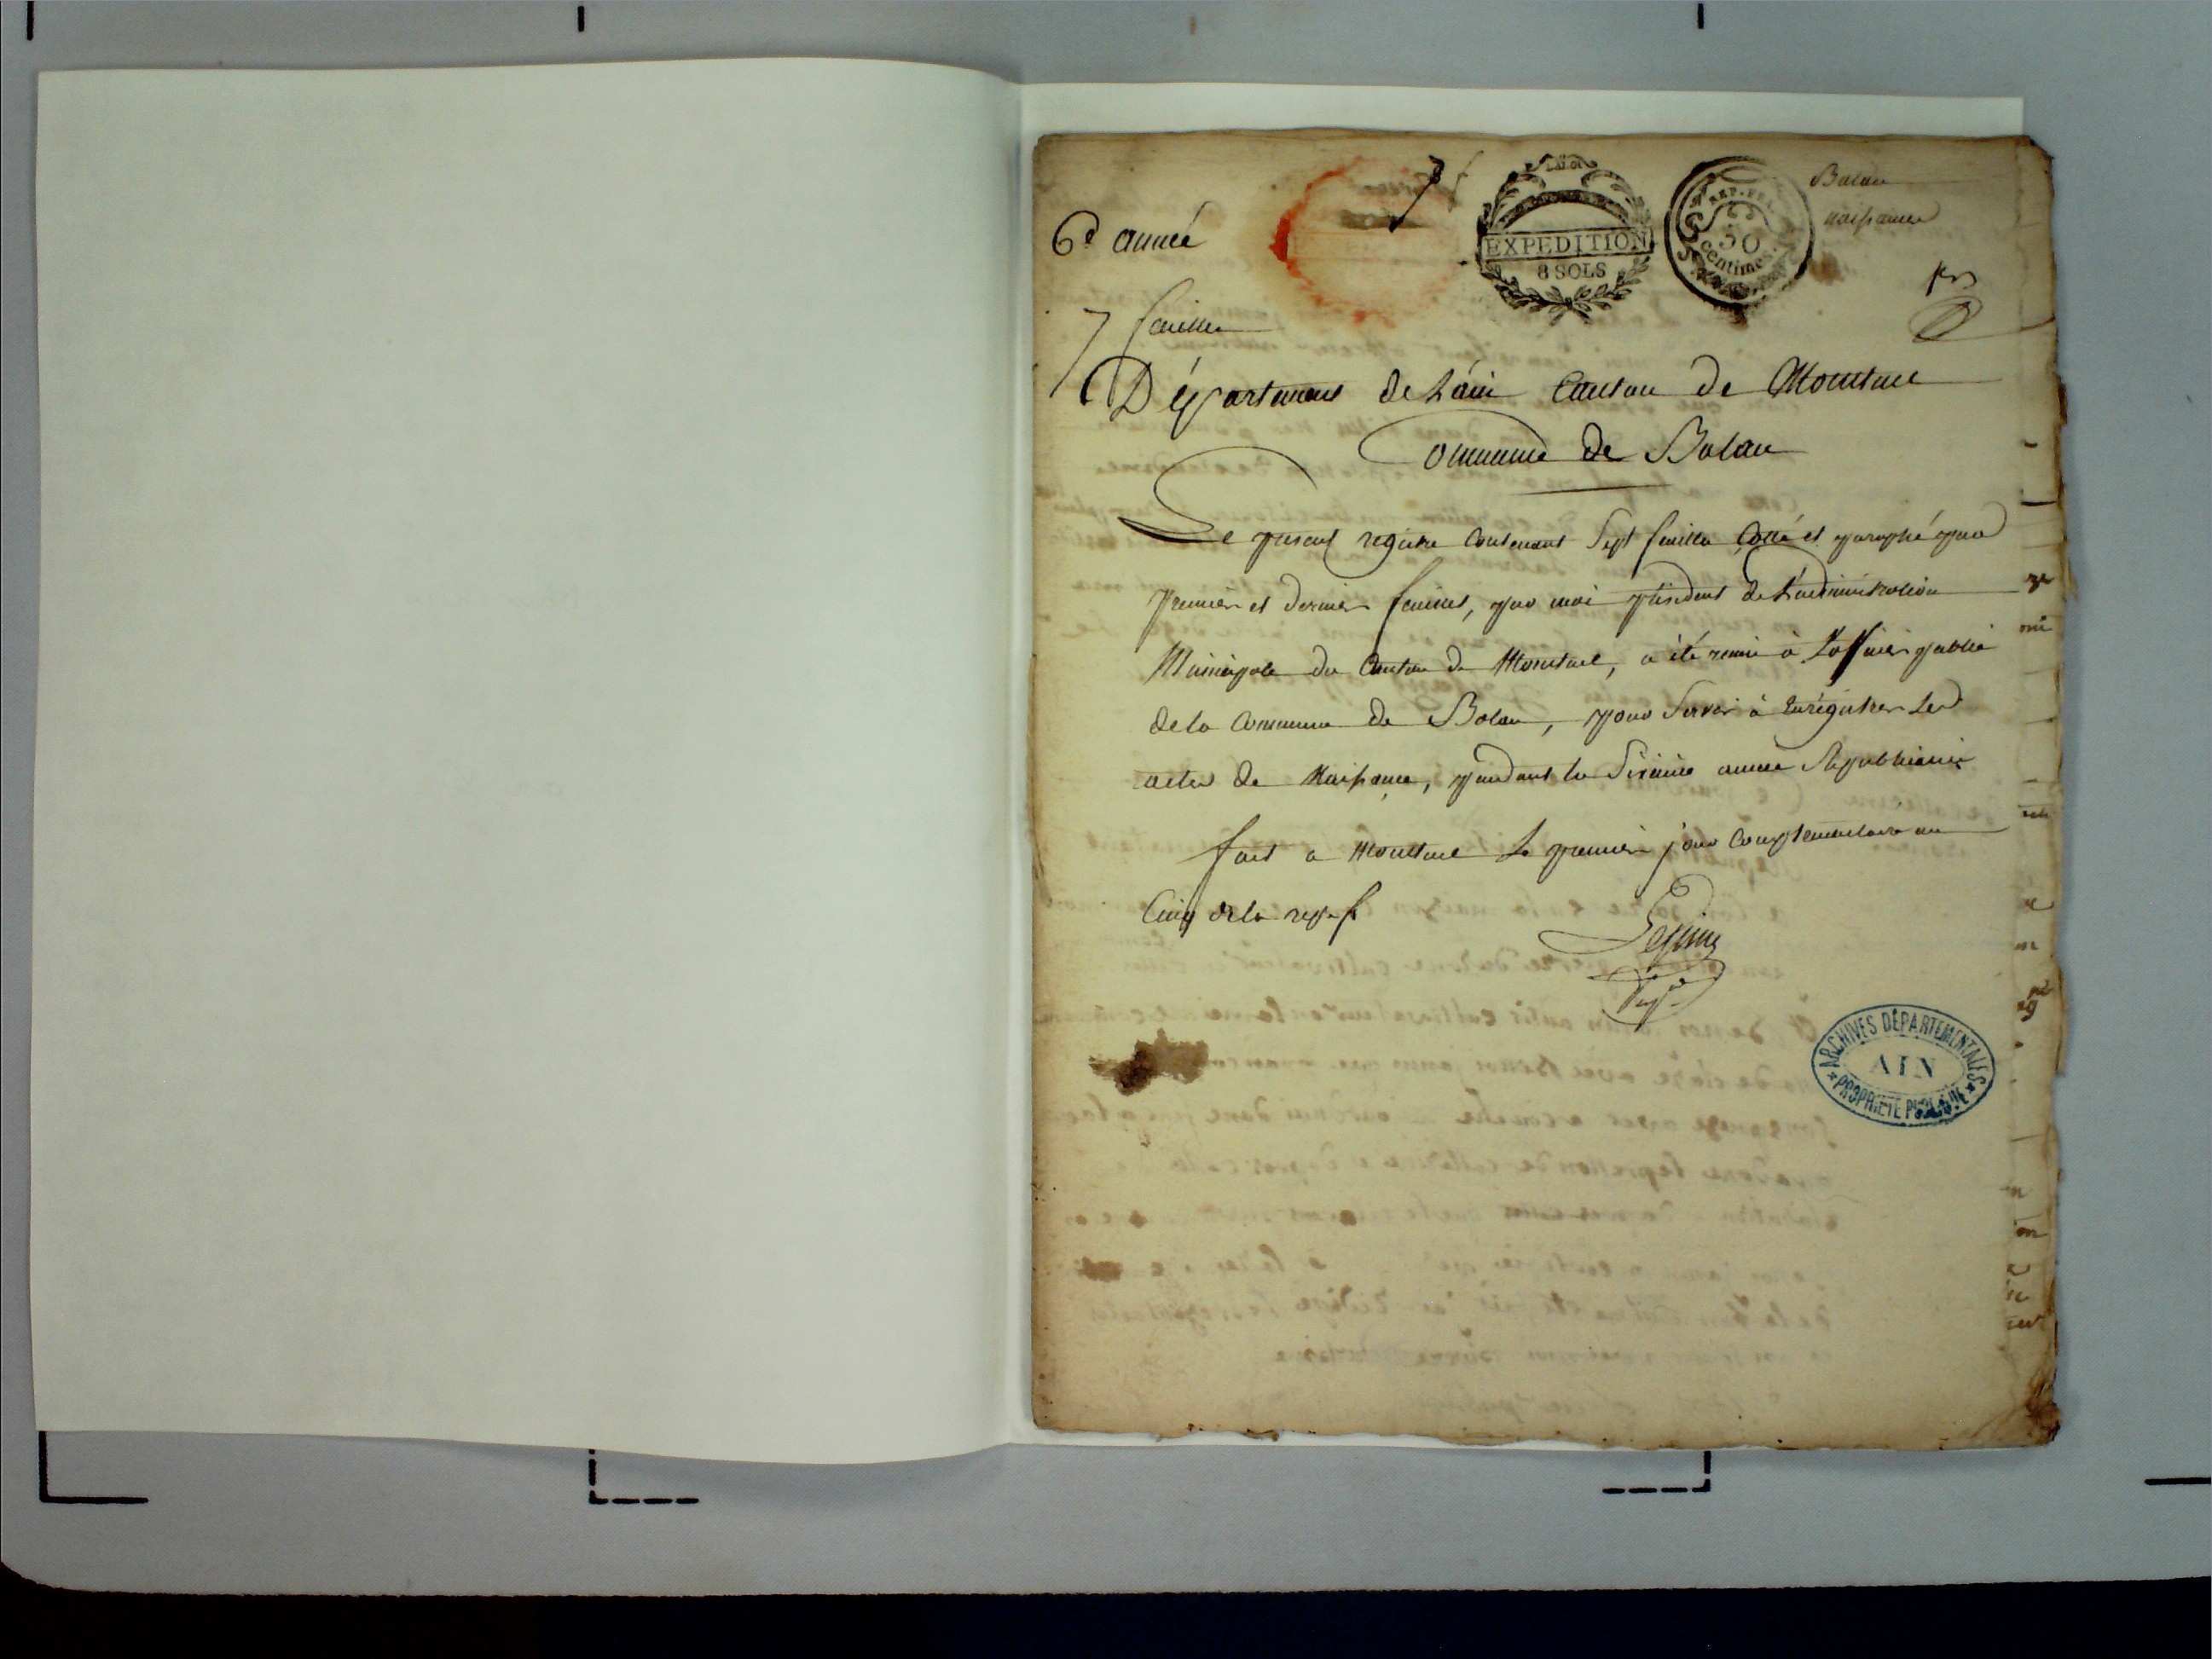 7 f
Balan
naissance
6e année
LA LOI
EXPEDITION
8 SOLS
REP. FRA
50
centimes
pr
7 feuilles
Département de Lain Canton de Montluel
Commune de Balan
Le present registre Contenant Sept feuilles Cotté et paraphé par
premier et dernier feuillet, par moi président de L'administration
Municipale du Canton de Montluel, a été remis à L'officier public
de la Commune de Balan, pour Servir à Enrégistrer Les
actes de Naissance, pendant la Sixième année Républicaine
fait a Montluel Le premier jour Complementaire an
Cinq de la rep. f
ARCHIVES DÉPARTEMENTALES
AIN
PROPRIÉTÉ PUBLIQUE